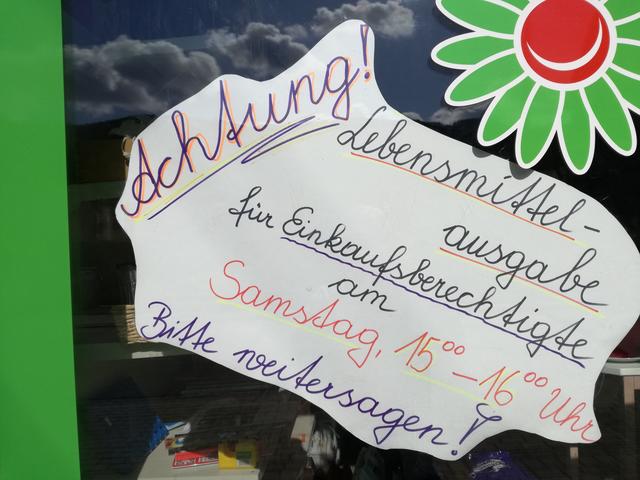 Achtung!
Lebensmittel-
ausgabe
für Einkaufsberechtigte
am
Samstag, 15⁰⁰ - 16⁰⁰ Uhr
Bitte weitersagen!